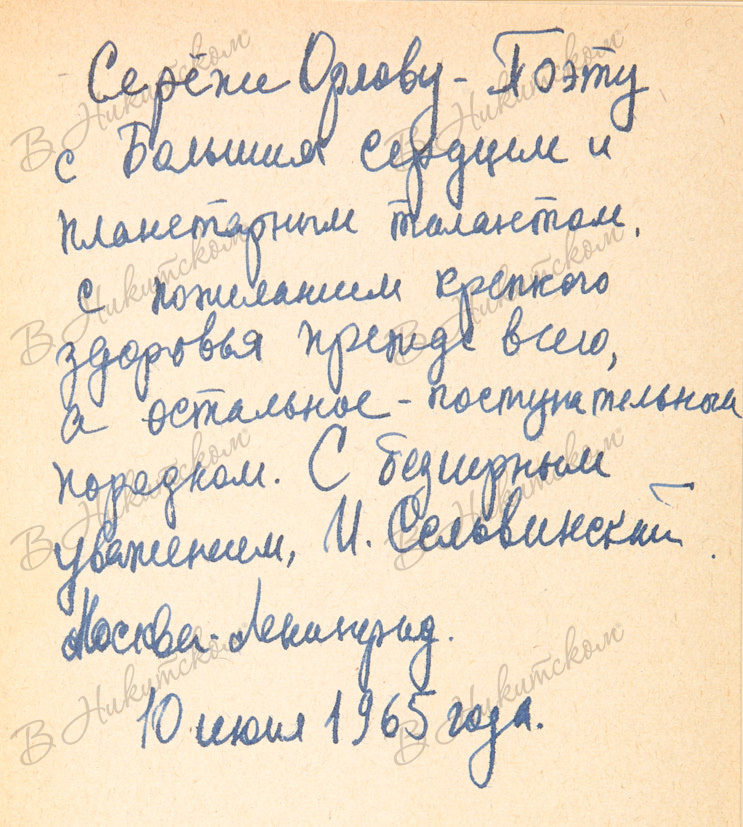 Серёжи Орлову - Поэту
с Большим сердцем и
планетарным талантом.
с пожеланием крепкого
здоровья прежде всего,
а остальное - поступательным
порядком. С безмерным
уважением, И. Сельвинский.
Москва-Ленинград.
10 июля 1965 года.
В Никитском
В Никитском
В Никитском
В Никитском
В Никитском
В Никитском
В Никитском
В Никитском